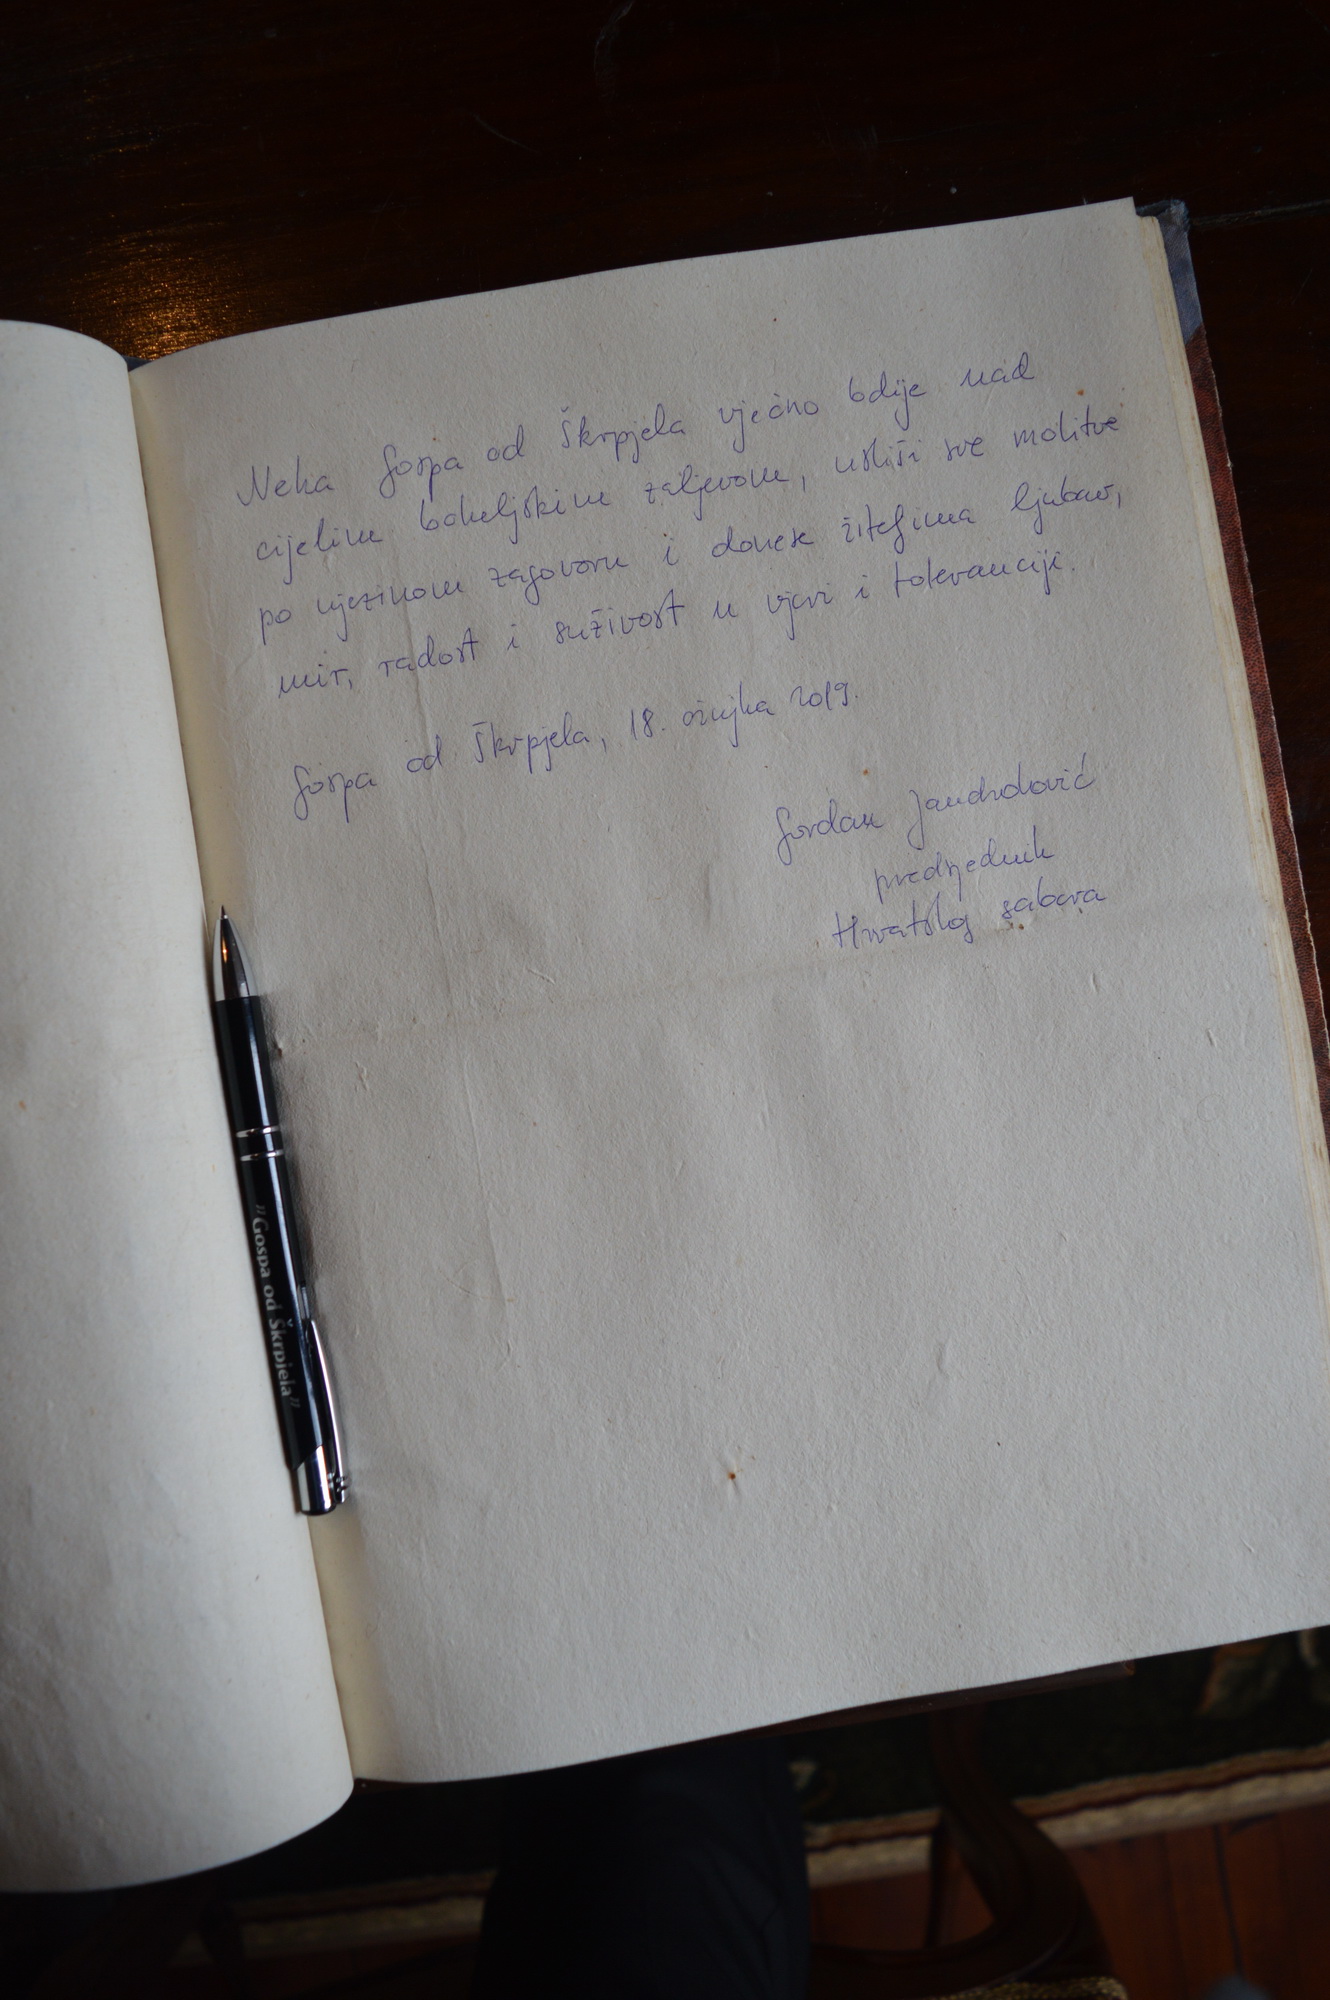 Neka Gospa od Škrpjela vječno bdije nad
cijelim bokeljskim zaljevom, usliši sve molitve
po njezinom zagovoru i donese žiteljima ljubav,
mir, radost i suživot u vjeri i toleranciji.
Gospa od Škrpjela, 18. ožujka 2019.
Gordan Jandroković
predsjednik
Hrvatskog sabora
"Gospa od Škrpjela"